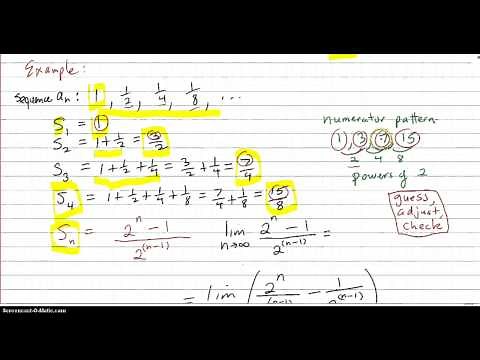 Example:
sequence aₙ: 1, 1/2, 1/4, 1/8, ...
S₁ = 1
S₂ = 1 + 1/2 = 3/2
S₃ = 1 + 1/2 + 1/4 = 3/2 + 1/4 = 7/4
S₄ = 1 + 1/2 + 1/4 + 1/8 = 7/4 + 1/8 = 15/8
Sₙ = (2ⁿ - 1)/2^(n-1)
lim n→∞ (2ⁿ - 1)/2^(n-1) =
= lim (2ⁿ/2^(n-1) - 1/2^(n-1))
numerator pattern
1, 3, 7, 15
2 4 8
powers of 2
guess,
adjust,
check
Screencast-O-Matic.com